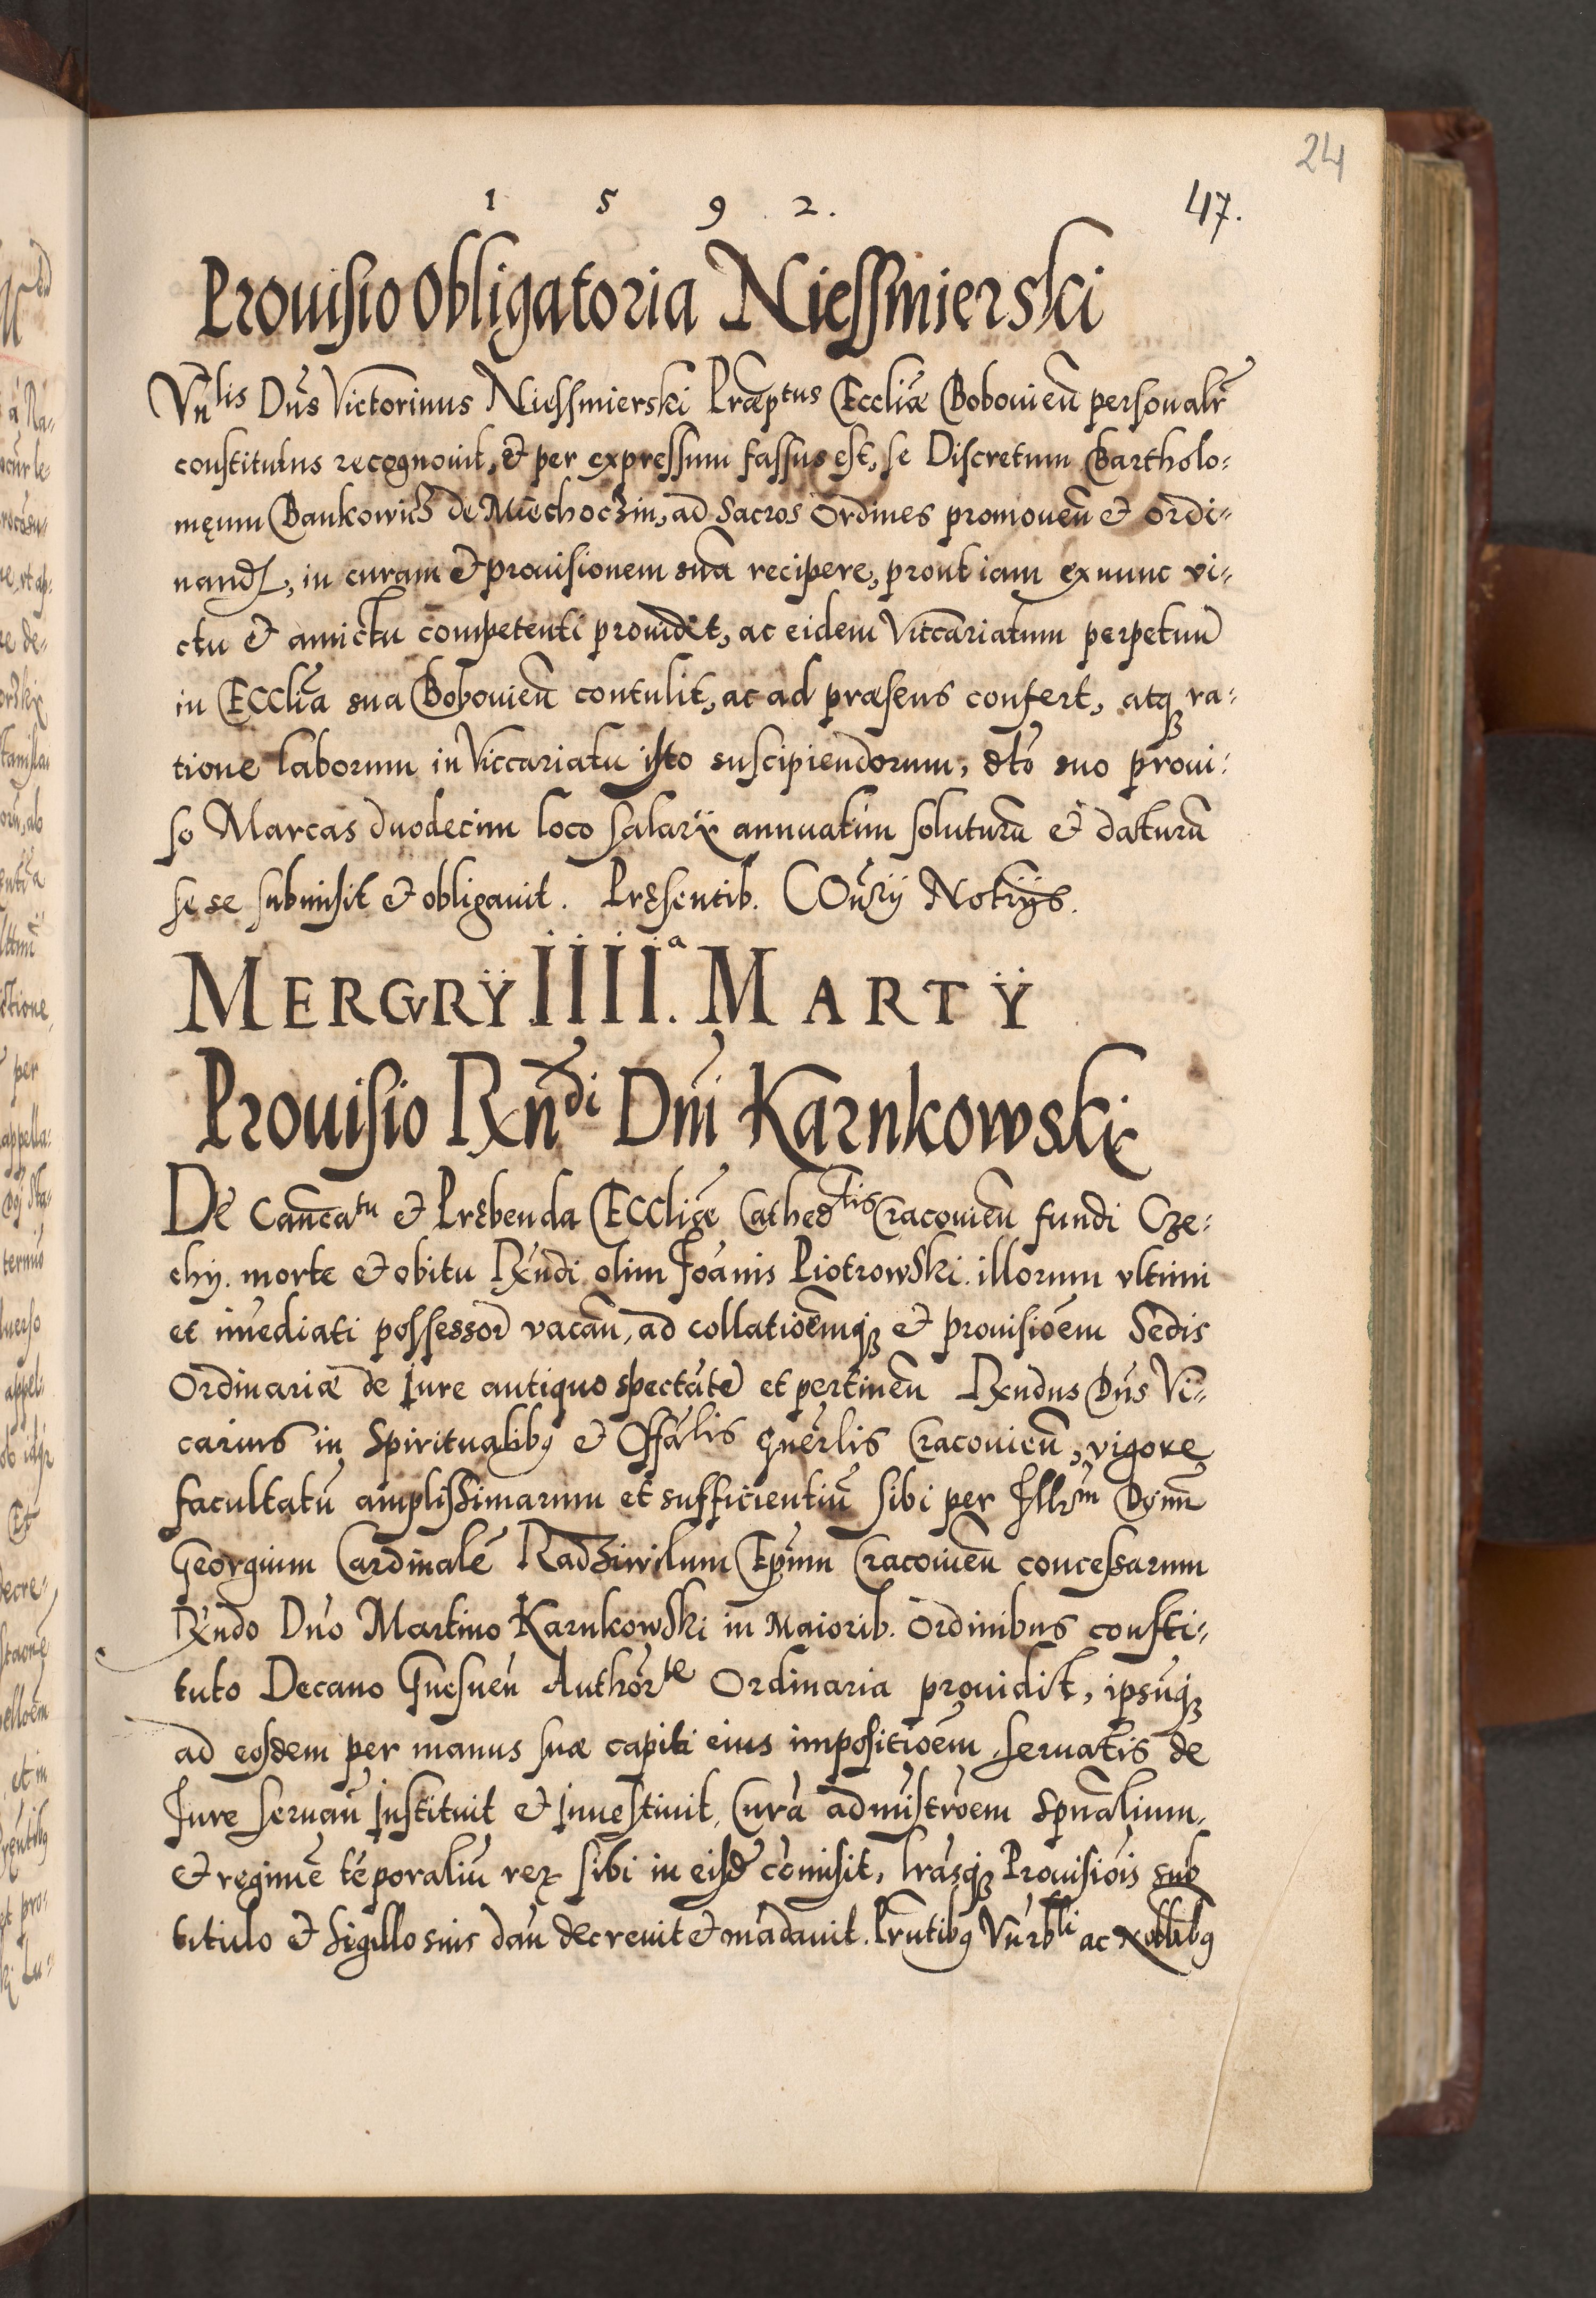 24
1 5 9 2. 47.
Prouisio Obligatoria Niessmierski
Vn̄lis Dn̄s Victorinus Niessmierski Præp<sup>tus</sup> Eccliæ Bobouien̄ personalr̄
constitutus recognouit, & per expressum fassus est, se Discretum Bartholo-
męum Bankowicz de Miechoczin, ad Sacros Ordines promouen̄ & ordi-
nand, in curam & prouisionem suā recipere, prout iam ex nunc vi-
ctu & amictu competenti prouidet, ac eidem Viccariatum perpetuū
in Ecclīa sua Bobouien̄ contulit, ac ad præsens confert, atq ra-
tione laborum in Viccariatu isto suscipiendorum, dto suo proui-
so Marcas duodecim loco salarÿ annuatim soluturū & daturū
se se submisit & obligauit. Pręsentib. COn̄rÿ Notrÿs.
MERCVRŸ IIIIª. MARTŸ
Prouisio Rxn̄di Dn̄i Karnkowskÿ
De Can̄catu & Prębenda Eccliæ Cathedlis Cracouien̄ fundi Cze-
chy. morte & obitu Rxn̄di olim Joānis Piotrowski illorum vltimi
et im̄ediati possessor̄ vacan̄, ad collatioēmq & prouisioēm Sedis
Ordinariæ de Iure antiquo spectātē et pertinen̄ Rxndus Dn̄s Vi-
carius in Spiritualibq & Offālis gn̄ērlis Cracouien̄, vigore
facultatū amplissimarum et sufficientiū sibi per Illr̄m Dn̄um
Georgium Cardinalē Radziwilum Ep̄um Cracouien̄ concessarum
Rxn̄do Dn̄o Martino Karnkowski in Maiorib. Ordinibus consti-
tuto Decano Gnesnen̄ Authorte Ordinaria prouidit, ipsūq
ad eosdem per manus suæ capiti eius impositioēm seruatis de
Jure seruan̄ Instituit & Inuestiuit, Curā admīstrōem Spn̄alium,
& regimē tēporaliū rer̄ sibi in eisd̄ cōmisit, lrāsq Prouisiōis sub
titulo & Sigillo suis dan̄ decreuit & mādauit. Prn̄tibq Vn̄rbli ac Nobilibq